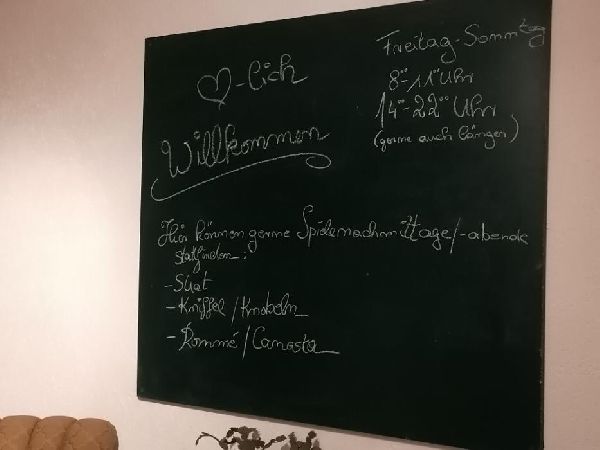 ♡-lich
Willkommen
Freitag-Sonntag
8⁰⁰-11⁰⁰Uhr
14⁰⁰-22⁰⁰Uhr
(gerne auch länger)
Hier können gerne Spielenachmittage/-abende
stattfinden:
-Skat
-Kniffel/Knobeln
-Rommé/Canasta